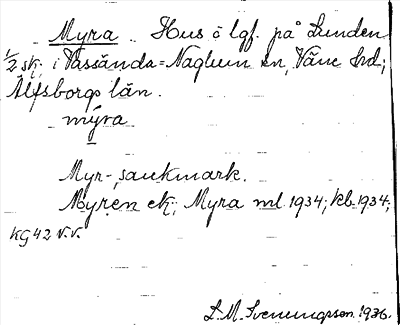 Myra. Hus å lgf. på Lunden
1/2 sk; i Vassända-Naglum sn, Väne hd;
Älfsborgs län.
mýra
Myr-, sankmark.
Myren ek; Myra ml 1934; kb 1934;
KG 42 v.v.
L. M. Svenungsson. 1936.